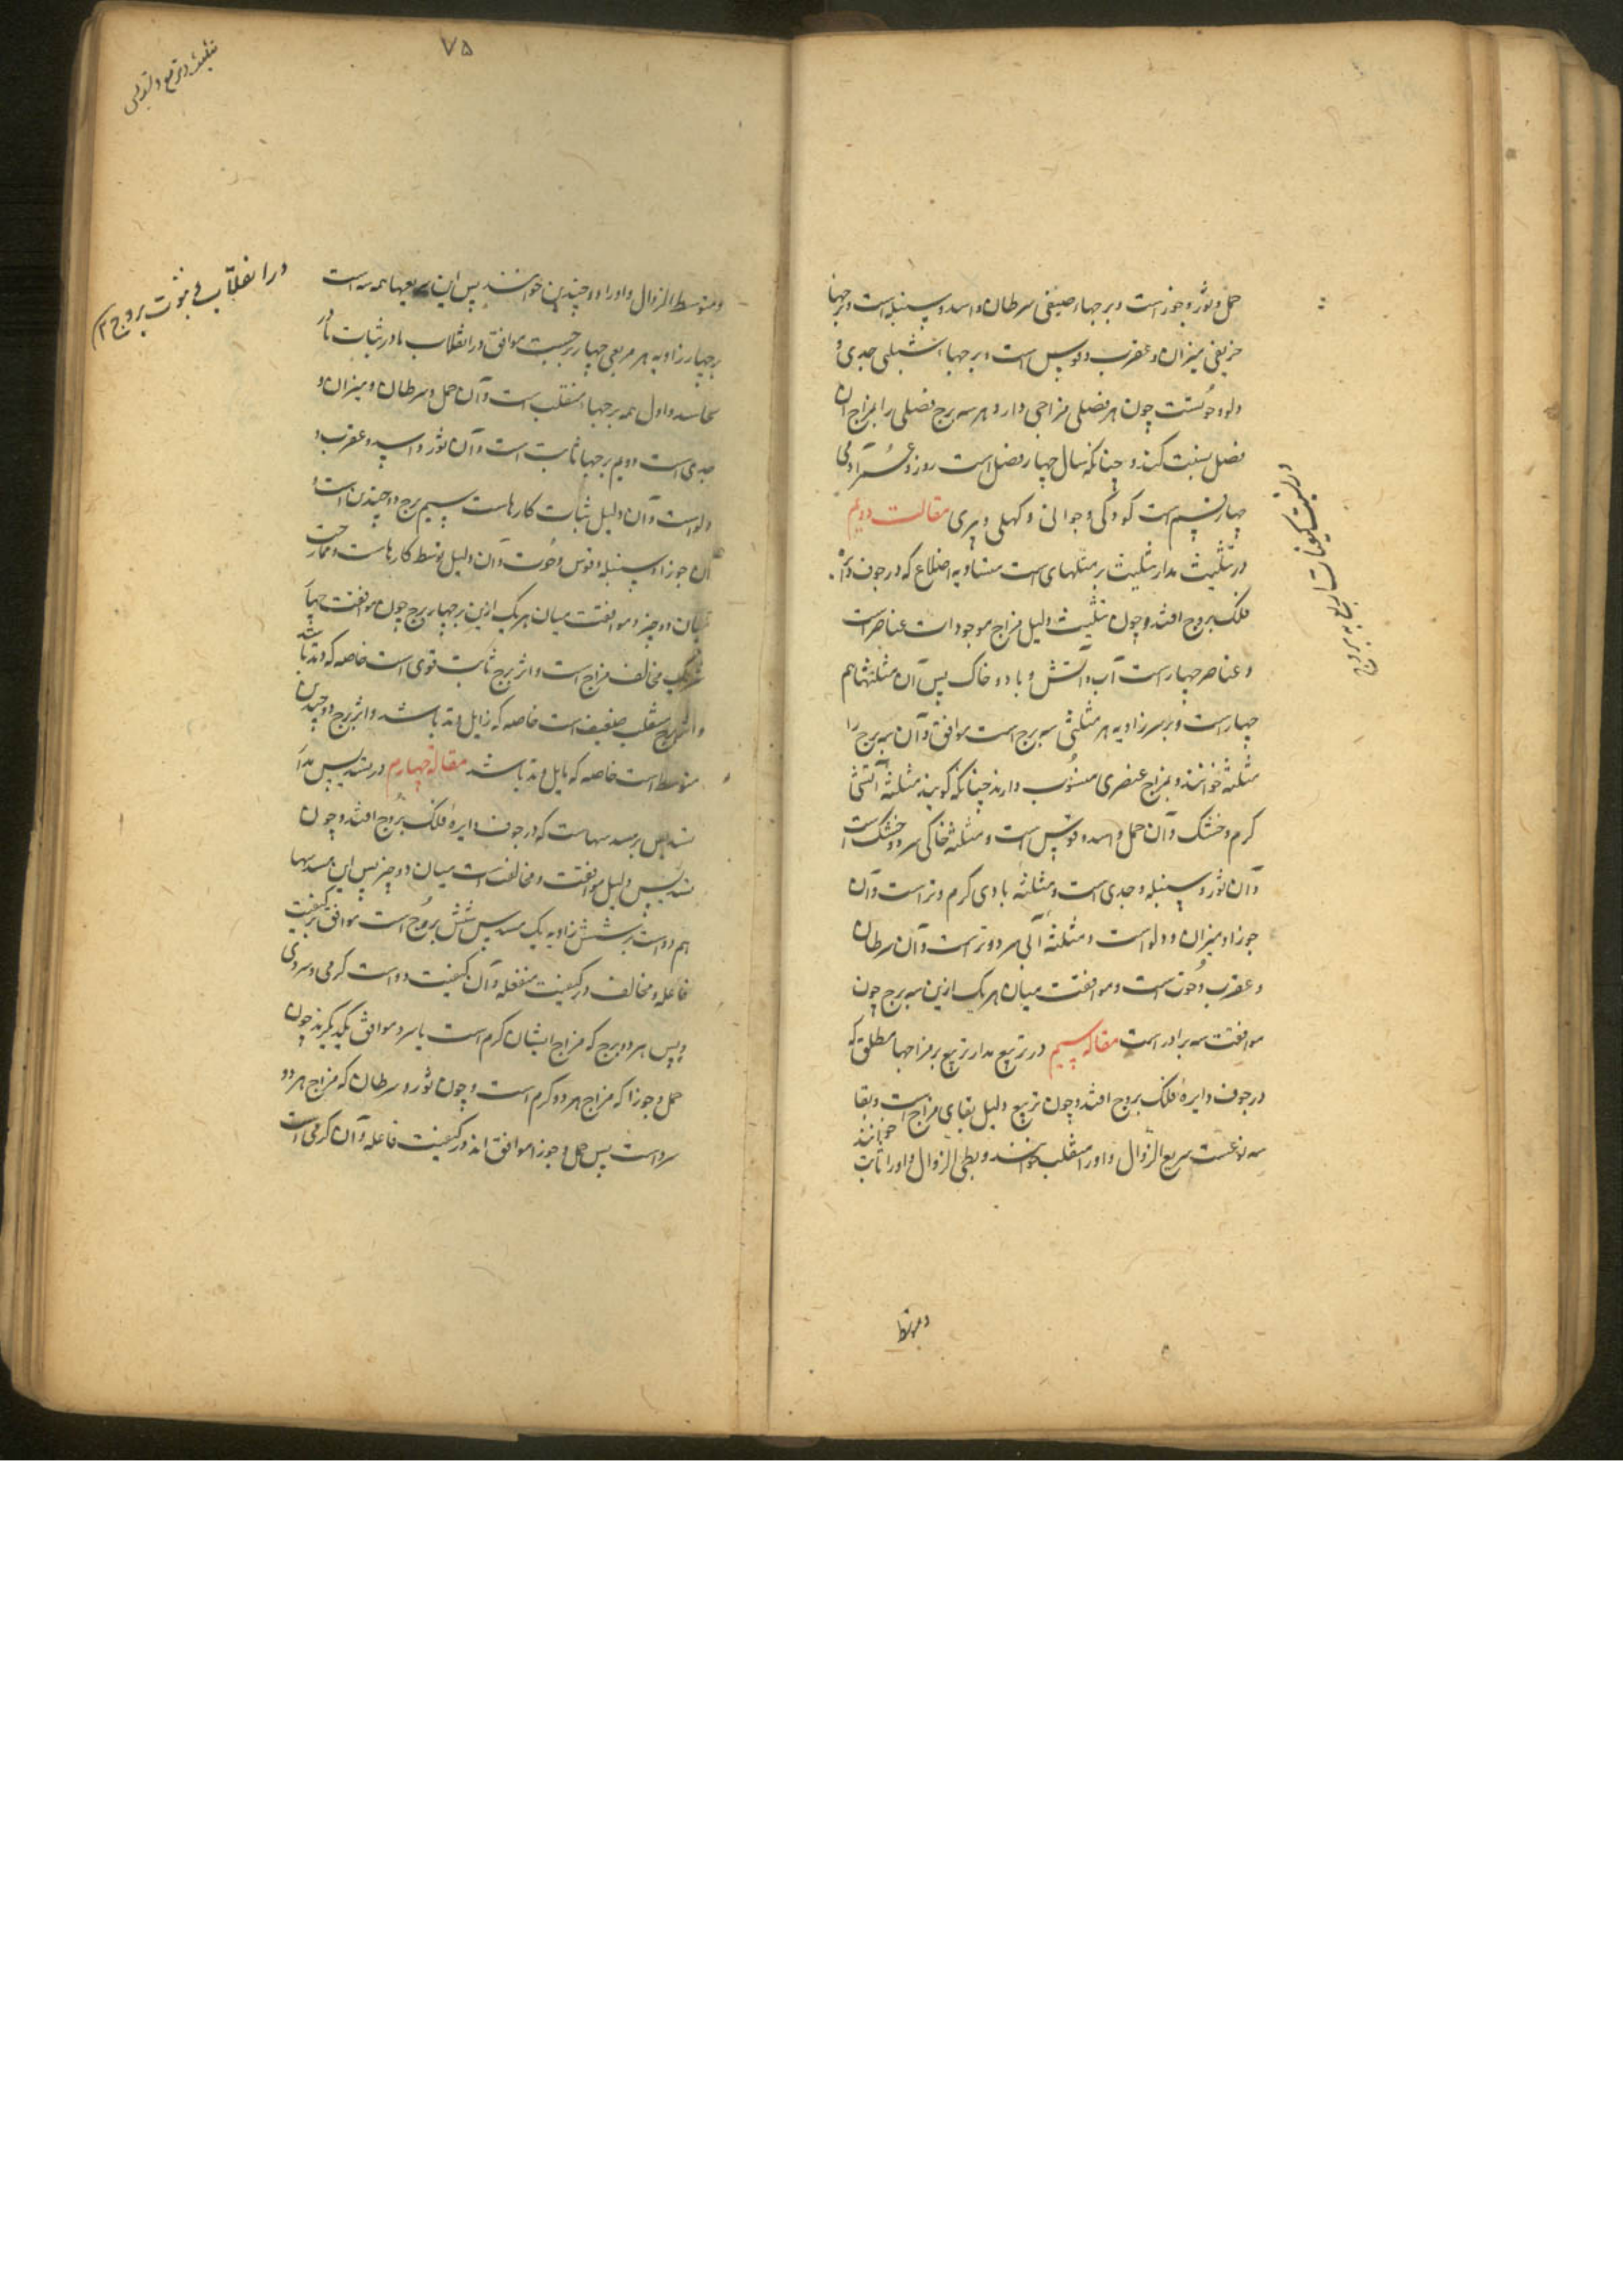 حمل و ثور و جوزاست و برجهاء صیفی سرطان و اسد و سنبله است و برجها
خریفی میزان و عقرب و قوس است و برجهاء شتوی جدی و
دلو و حوتست چون هر فصلی مزاجی دارد و هر سه برج فصلی را بمزاج آن
فصل نسبت کنند و چنانکه سال چهار فصل است روز و عمر آدمی
چهار قسم است کودکی و جوانی و کهلی و پیری مقالت دویم
در تثلیث مدار تثلیث بر مثلثهای است متساویه اضلاع که در جوف دائره
فلک بروج افتد و چون تثلیث دلیل مزاج موجودات عناصر است
و عناصر چهار است آب و آتش و باد و خاک پس آن مثلثها هم
چهار است و بر سر زاویه هر مثلثی سه برج است موافق و آن سه برج را
مثلثه خوانند و بمزاج عنصری منسوب دارند چنانکه گویند مثلثه آتشی
گرم و خشک و آن حمل و اسد و قوس است و مثلثه خاکی سرد و خشک است
و آن ثور و سنبله و جدی است و مثلثه بادی گرم و تر است و آن
جوزا و میزان و دلو است و مثلثه آبی سرد و تر است و آن سرطان
و عقرب و حوت است و موافقت میان هر یک ازین سه برج چون
موافقت سه برادر است مقاله سیم در تربیع مدار تربیع بر مزاجها مطلق که
در جوف دایره فلک بروج افتد و چون تربیع دلیل بقای مزاج است و بقا
سه نوعست سریع الزوال و او را منقلب خوانند و بطی الزوال و او را ثابت خوانند
و متوسط
در نسبت کیفیات تسابیع به بروج
۷۵
تثلیث و تربیع و تسدیس
در انقلاب و ثبوت بروج
و متوسط الزوال و او را ذو جسدین خوانند پس این مربعها همه سه است
بر چهار زاویه هر مربعی چهار برجست موافق در انقلاب یا در ثبات یا در
تجاسد و اول همه برجهاء منقلب است و آن حمل و سرطان و میزان و
جدی است دویم برجها ثابت است و آن ثور و اسد و عقرب و
دلو است و آن دلیل ثبات کارهاست سیم برج ذو جسدین است و
آن جوزا و سنبله و قوس و حوت و آن دلیل توسط کارهاست و ممازجت
میان دو چیز و موافقت میان هر یک ازین برچهار برج چون موافقت چهار
شریک مخالف مزاج است و اثر برج ثابت قوی است خاصه که وتد باشد
و اثر برج منقلب ضعیف است خاصه که زایل وتد باشد و اثر برج ذو جسدین
متوسط است خاصه که مایل وتد باشد مقاله چهارم در تسدیس مدار
تسدیس بر مسدسهاست که در جوف دایره فلک بروج افتد و چون
تسدیس دلیل موافقت و مخالفت است میان دو چیز پس این مسدسها
هم دو است بر شش زاویه یک مسدس شش بروج است موافق در کیفیت
فاعله و مخالف در کیفیت منفعله و آن کیفیت دو است گرمی و سردی
و پس هر دو برج که مزاج ایشان گرم است یا سرد موافق یکدیگرند چون
حمل و جوزا که مزاج هر دو گرم است و چون ثور و سرطان که مزاج هر دو
سرد است پس حمل و جوزا موافق اند در کیفیت فاعله و آن گرمی است